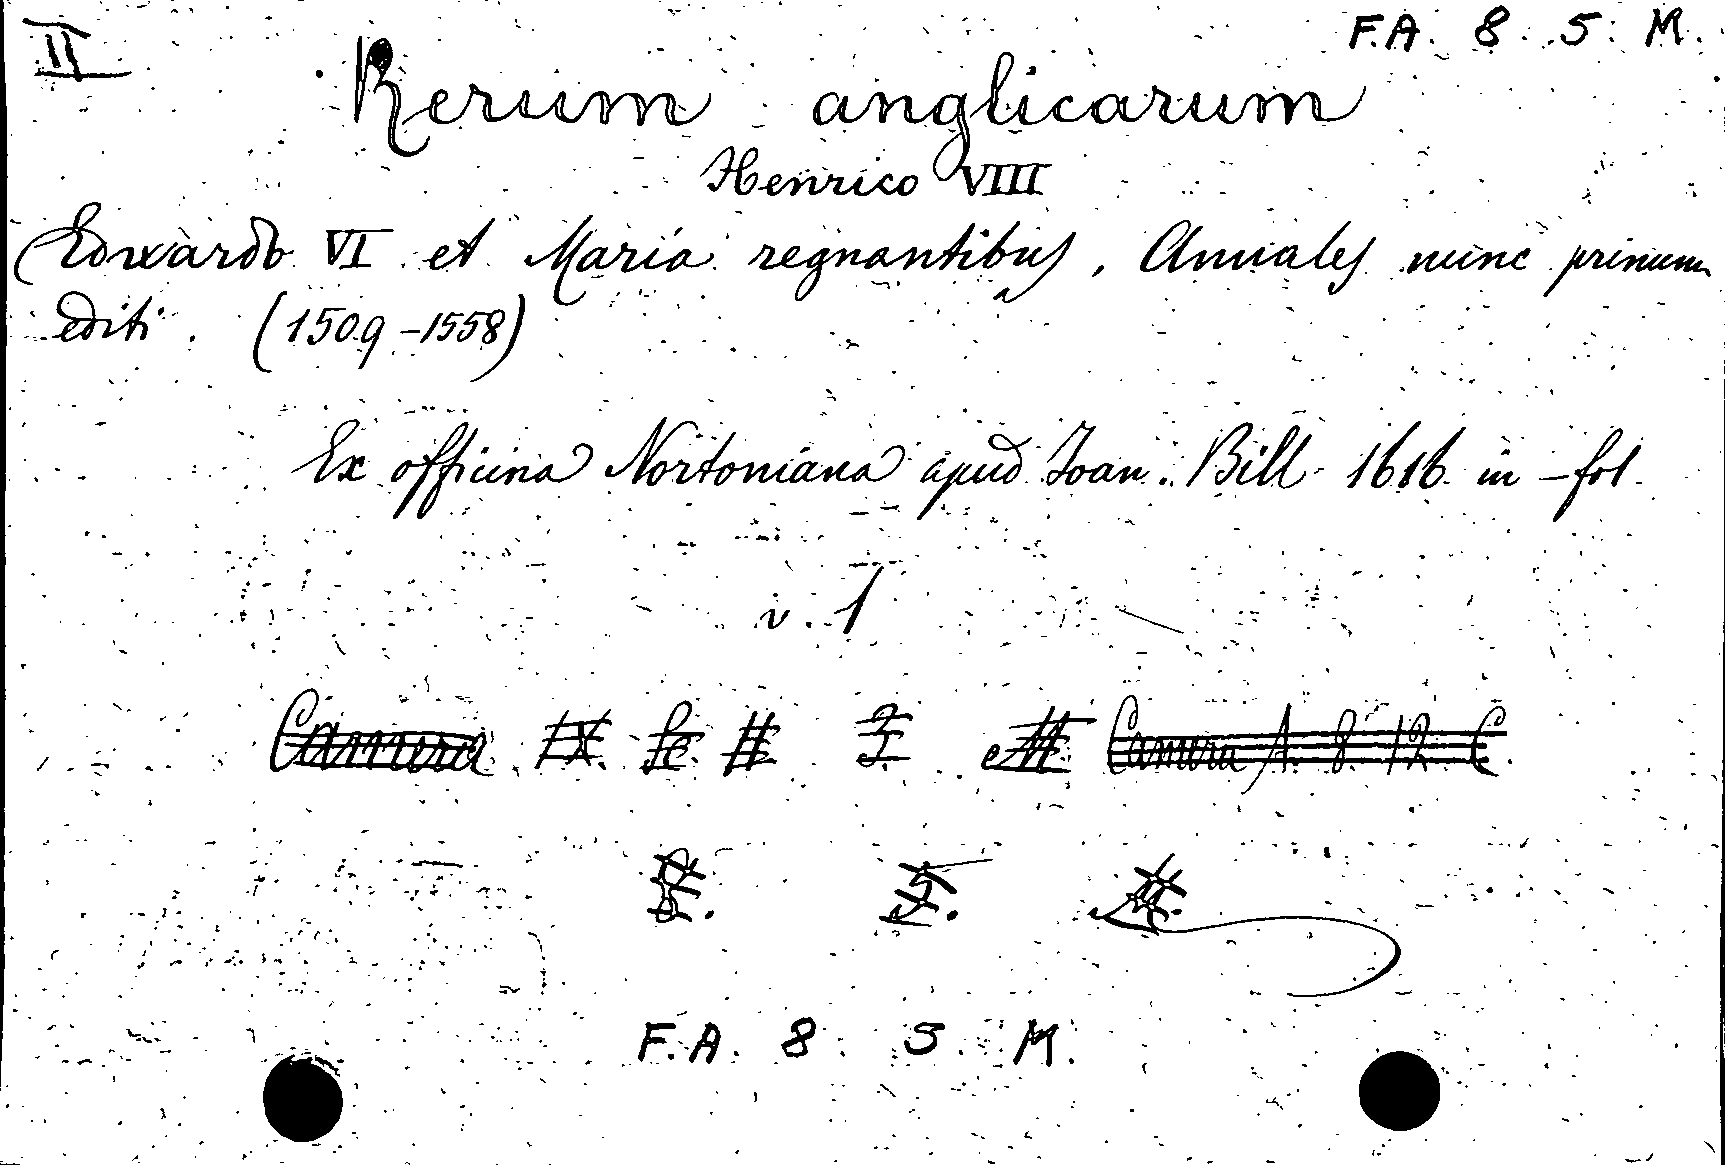 II
F.A. 8. 5. M.
Rerum anglicarum
Henrico VIII
Edwardo VI et Maria regnantibus, Annales nunc primum
editi. (1509-1558)
Ex officina Nortoniana apud Joan. Bill 1616 in-fol.
v. 1
Camera IX. Sc. II 5 M. Camera A. 8. 12. C.
8. 5. M.
F.A. 8. 5. M.